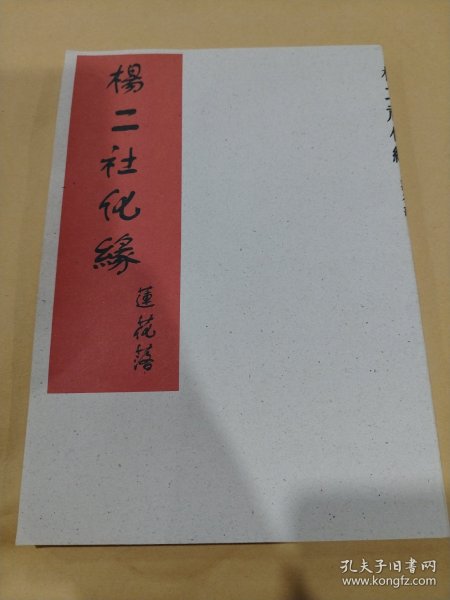 楊二社化緣
蓮花落
楊二社化緣
孔夫子旧书网
www.kongfz.com